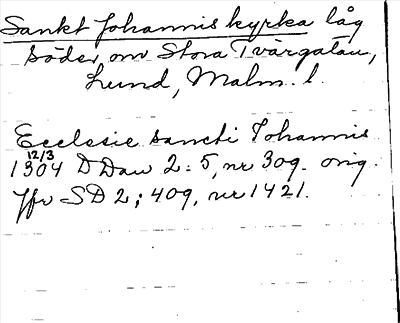 Sankt Johannis kyrka låg
söder om Stora Tvärgatan,
Lund, Malm. l.
Ecclesie sancti Johannis
12/3
1304 DDan 2:5, nr 309. orig.
Jfr SD 2; 409, nr 1421.